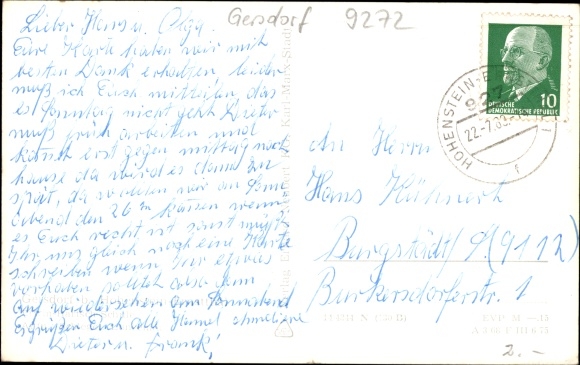 Gersdorf 9272
Lieber Hans u. Olga.
Eure Karte haben wir mit
besten Dank erhalten, leider
muß ich Euch mitteilen, das
es Sonntag nicht geht Dieter
muß früh arbeiten und
kommt erst gegen mittag nach
hause da wird es dann zu
spät, da wollen wir am Sonn
abend den 26ten kommen wenn
es Euch recht ist sonst müßt
Ihr uns gleich noch eine Karte
schreiben wenn Ihr etwas
vorhaben solltet also dann
auf wiedersehen am Sonnabend
Es grüßen Euch alle
Dieter u. Frank!
DEUTSCHE
DEMOKRATISCHE REPUBLIK
10
HOHENSTEIN-E
927
22.-7.69
f
An Herrn
Hans
Burgstädt/S. (9112)
Burkersdorferstr. 1
2.-